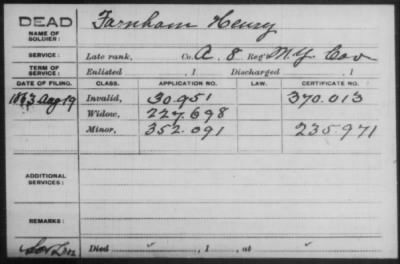 DEAD
NAME OF SOLDIER: Farnham Henry
SERVICE: Late rank, Co. A, 8 Reg't N.Y. Cav
TERM OF SERVICE: Enlisted , 1 Discharged , 1
DATE OF FILING. CLASS. APPLICATION NO. LAW. CERTIFICATE NO.
1863 Aug 19 Invalid, 30.951 370.013
Widow, 227.698
Minor, 352.091 235.971
ADDITIONAL SERVICES:
REMARKS:
Died , 1 , at